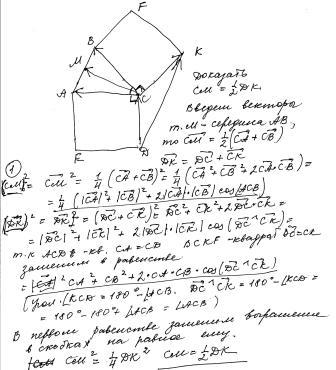 F
B
K
M
A
C
E
D
Доказать
CM = 1/2 DK.
Введем векторы
т. M - середина AB,
то CM = 1/2 (CA + CB)
DK = DC + CK
① |CM|² = CM² = 1/4 (CA + CB)² = 1/4 (CA² + CB² + 2CA·CB) =
= 1/4 (|CA|² + |CB|² + 2|CA|·|CB| cos∠ACB)
|DK|² = DK² = (DC + CK)² = DC² + CK² + 2DC·CK =
= |DC|² + |CK|² + 2|DC|·|CK| cos(DC^CK)
т.к ACDE - кв. CA = CD BCKF - квадрат BC = CK
заменим в равенстве
= CA² + CB² + 2·CA·CB·cos(DC^CK)
угол ∠KCD = 180° - ∠ACB. DC^CK = 180° - ∠KCD =
= 180° - 180° + ∠ACB = ∠ACB)
В первом равенстве заменим выражение
в скобках на равное ему.
CM² = 1/4 DK² CM = 1/2 DK